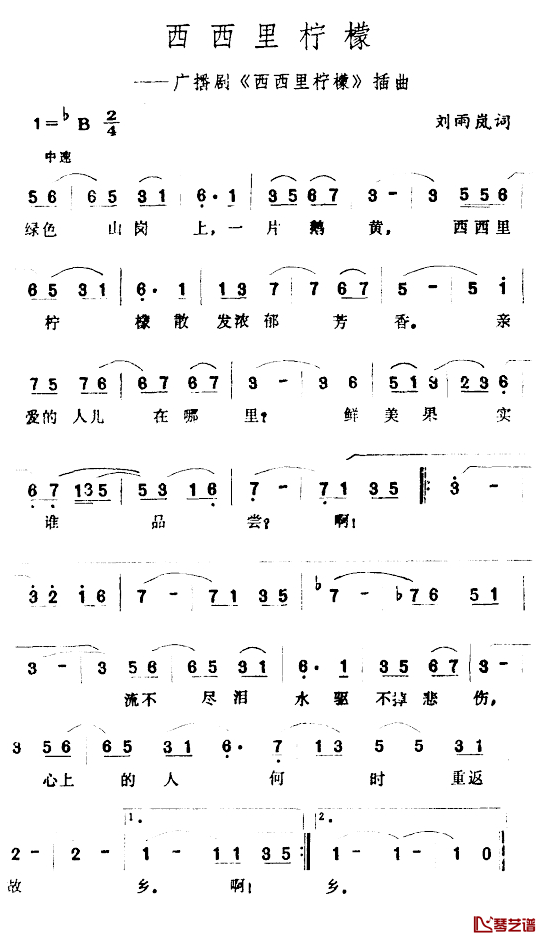 西西里柠檬
——广播剧《西西里柠檬》插曲
1=♭B 2/4 刘雨岚词
中速
5 6 | 6 5 3 1 | 6· 1 | 3 5 6 7 | 3 - | 3 5 5 6 |
绿色 山岗 上，一 片 鹅 黄， 西西里
6 5 3 1 | 6· 1 | 1 3 7 | 7 6 7 | 5 - | 5 i
柠 檬散 发浓郁 芳 香。 亲
7 5 7 6 | 6 7 6 7 | 3 - | 3 6 | 5 1 3 | 2 3 6
爱的 人儿 在哪 里？ 鲜 美 果 实
6 7 1 3 5 | 5 3 1 6 | 7 - | 7 1 3 5 ‖: 3 -
谁 品 尝？ 啊！
3 2 i 6 | 7 - | 7 1 3 5 | ♭7 - | ♭7 6 5 1 |
3 - | 3 5 6 | 6 5 3 1 | 6· 1 | 3 5 6 7 | 3 -
流不 尽泪 水 驱 不掉 悲 伤，
3 5 6 | 6 5 3 1 | 6· 7 | 1 3 5 | 5 3 1
心上 的 人 何 时 重返
1. 2.
2 - | 2 - | 1 - | 1 1 3 5 :‖ 1 - | 1 0 ‖
故 乡。 啊！ 乡。
琴艺谱